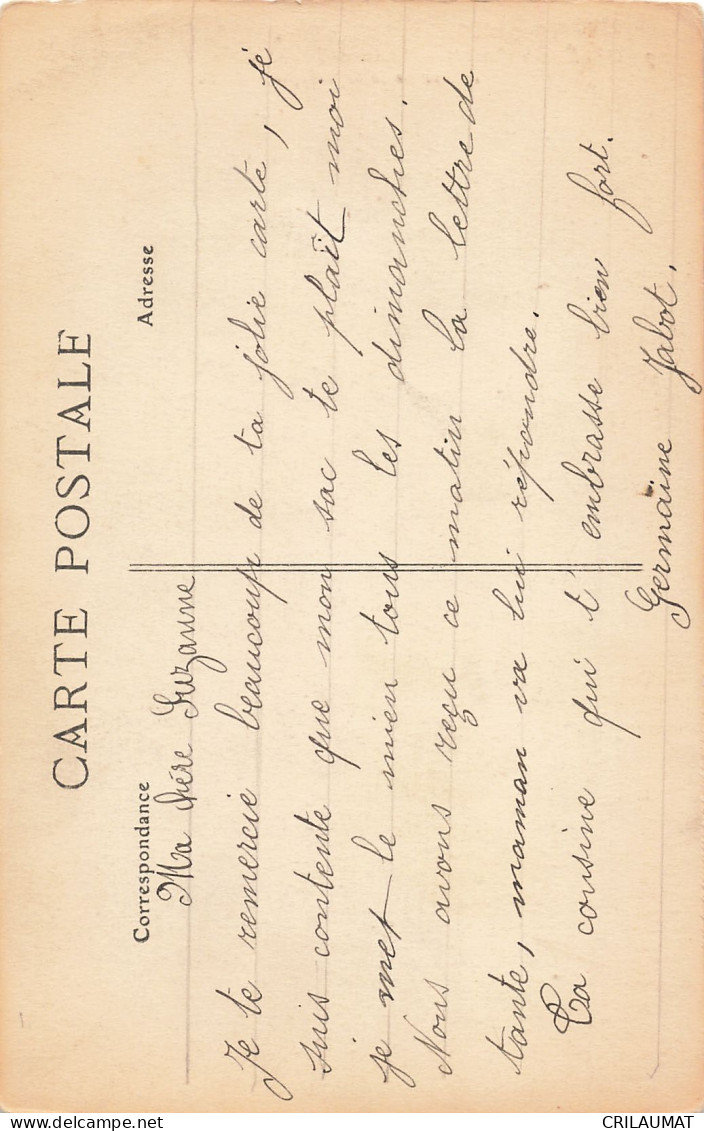 CARTE POSTALE
Correspondance
Adresse
Ma chére Suzanne
Je te remercie beaucoup de ta jolie carte, jé
suis contente que mon sac te plaît moi
je met le mien tous les dimanches.
Nous avons reçu ce matin la lettre de
tante, maman va lui répondre.
Ta cousine qui t'embrasse bien fort.
Germaine Jabot.
CRILAUMAT